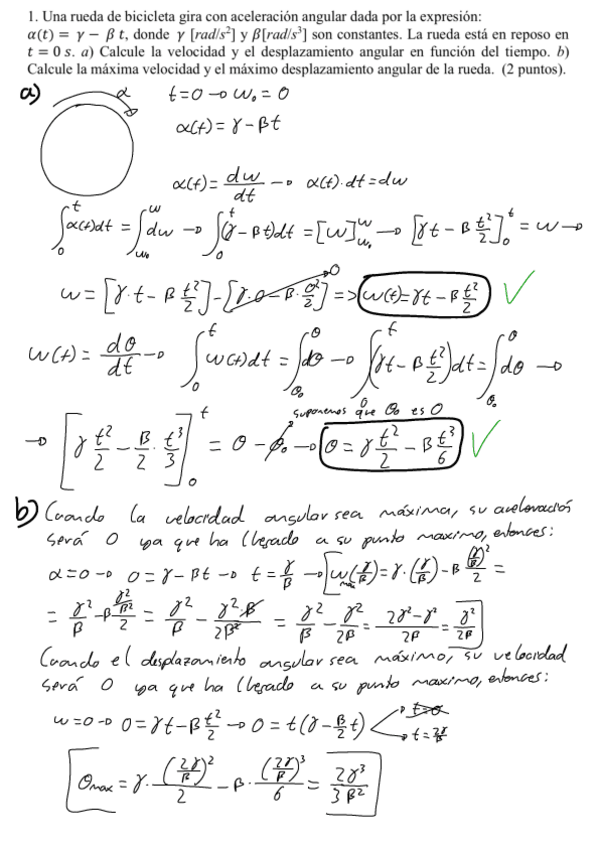 1. Una rueda de bicicleta gira con aceleración angular dada por la expresión:
α(t) = γ − β t, donde γ [rad/s²] y β[rad/s³] son constantes. La rueda está en reposo en
t = 0 s. a) Calcule la velocidad y el desplazamiento angular en función del tiempo. b)
Calcule la máxima velocidad y el máximo desplazamiento angular de la rueda. (2 puntos).
a) α t=0 → ω₀ = 0
α(t) = γ − βt
α(t) = dω/dt → α(t)·dt = dω
∫₀ᵗ α(t)dt = ∫_{ω₀}^{ω} dω → ∫₀ᵗ (γ − βt)dt = [ω]_{ω₀}^{ω} → [γt − β t²/2]₀ᵗ = ω →
ω = [γ·t − β t²/2] − [γ·0 − β·0²/2] 0 => ω(t) = γt − β t²/2 ✓
ω(t) = dθ/dt → ∫₀ᵗ ω(t)dt = ∫_{θ₀}^{θ} dθ → ∫₀ᵗ (γt − β t²/2)dt = ∫_{θ₀}^{θ} dθ →
suponemos que θ₀ es 0
→ [γ t²/2 − β/2 · t³/3]₀ᵗ = θ − θ₀ → θ = γ t²/2 − β t³/6 ✓
b) Cuando la velocidad angular sea máxima, su aceleración
será 0 ya que ha llegado a su punto maximo, entonces:
α = 0 → 0 = γ − βt → t = γ/β → ω_max(γ/β) = γ·(γ/β) − β (γ/β)²/2 =
= γ²/β − β (γ²/β²)/2 = γ²/β − γ²·β/2β² = γ²/β − γ²/2β = 2γ²−γ²/2β = γ²/2β
Cuando el desplazamiento angular sea máximo, su velocidad
será 0 ya que ha llegado a su punto maximo, entonces:
ω = 0 → 0 = γt − β t²/2 → 0 = t(γ − β/2 t) t=0 t = 2γ/β
θmax = γ · (2γ/β)²/2 − β · (2γ/β)³/6 = 2γ³/3β²